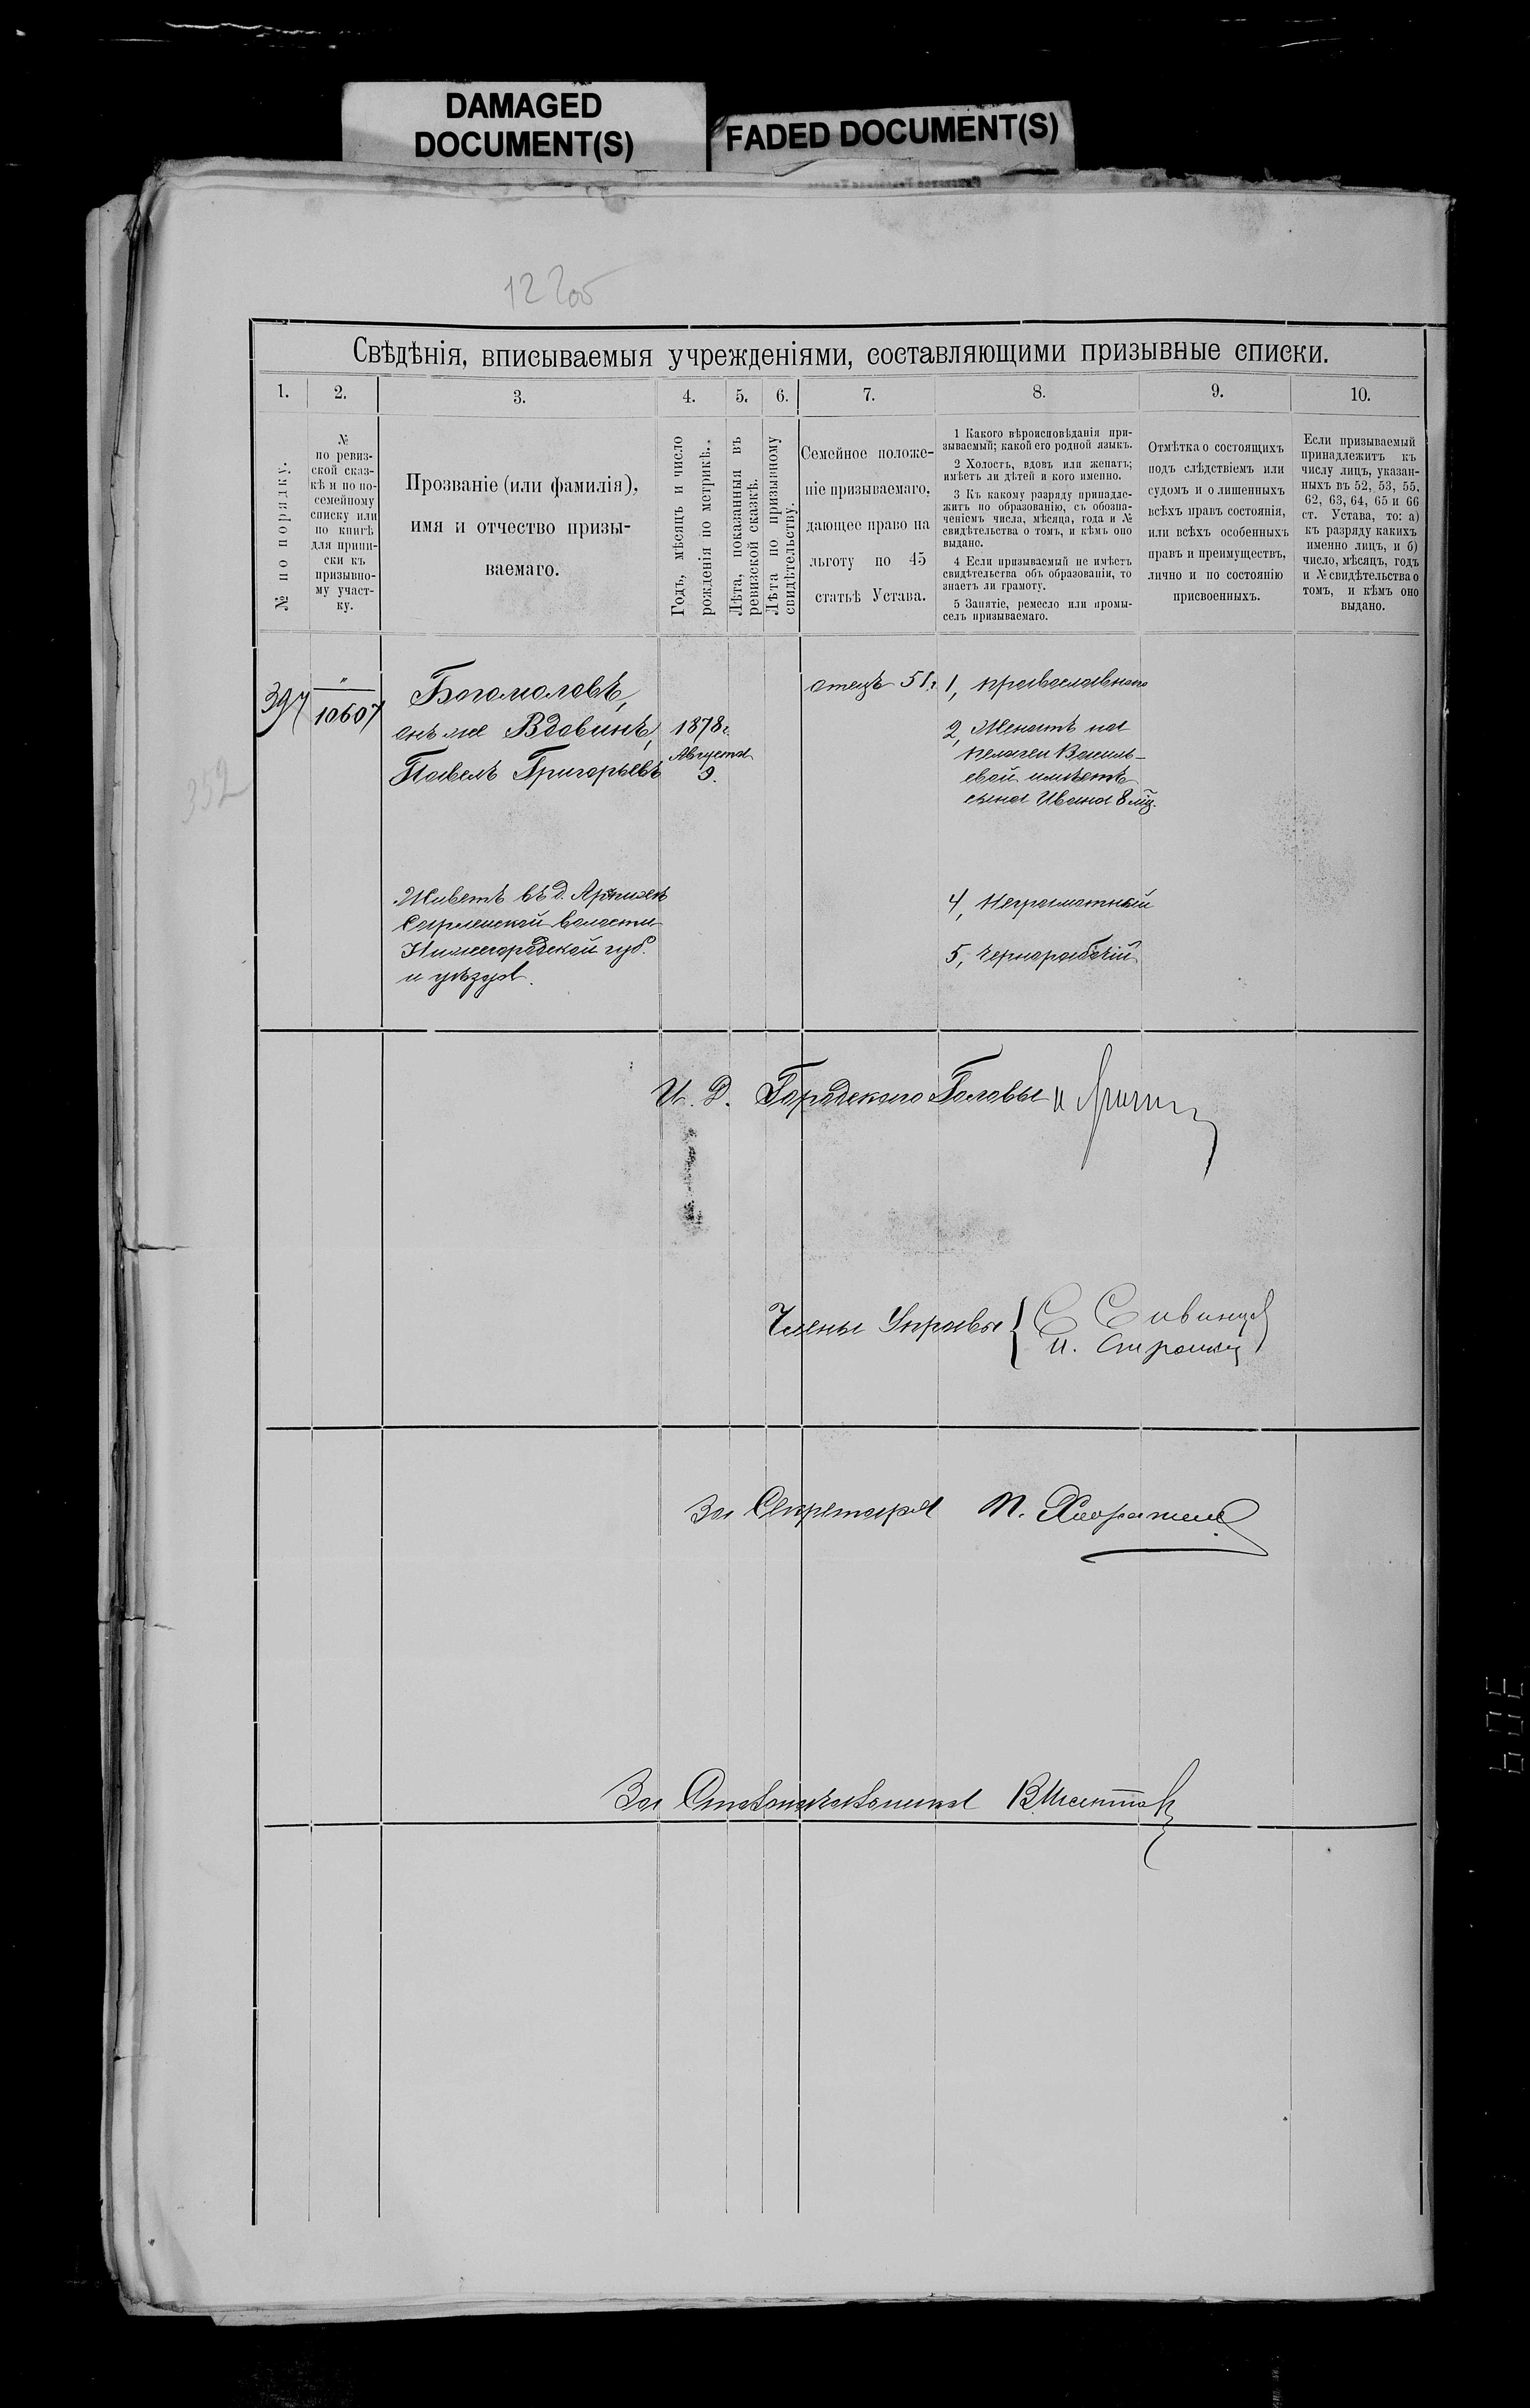 DAMAGED
DOCUMENT(S)
FADED DOCUMENT(S)
Свѣдѣнія, вписываемыя учрежденіями, составляющими призывные списки.
1.
2.
3.
4.
5.
6.
7.
8.
9.
10.
№ по порядку.
№
по ревиз-
ской сказ-
кѣ и по по-
семейному
списку или
по книгѣ
для припи-
ски къ
призывно-
му участ-
ку.
Прозваніе (или фамилія),
имя и отчество призы-
ваемаго.
Годъ, мѣсяцъ и число
рожденія по метрикѣ.
Лѣта, показанныя въ
ревизской сказкѣ.
Лѣта по призывному
свидѣтельству.
Семейное положе-
ніе призываемаго,
дающее право на
льготу по 45
статьѣ Устава.
1 Какого вѣроисповѣданія при-
зываемый; какой его родной языкъ.
2 Холостъ, вдовъ или женатъ;
имѣетъ ли дѣтей и кого именно.
3 Къ какому разряду принадле-
житъ по образованію, съ обозна-
ченіемъ числа, мѣсяца, года и №
свидѣтельства о томъ, и кѣмъ оно
выдано.
4 Если призываемый не имѣетъ
свидѣтельства объ образованіи, то
знаетъ ли грамоту.
5 Занятіе, ремесло или промы-
селъ призываемаго.
Отмѣтка о состоящихъ
подъ слѣдствіемъ или
судомъ и о лишенныхъ
всѣхъ правъ состоянія,
или всѣхъ особенныхъ
правъ и преимуществъ,
лично и по состоянію
присвоенныхъ.
Если призываемый
принадлежитъ къ
числу лицъ, указан-
ныхъ въ 52, 53, 55,
62, 63, 64, 65 и 66
ст. Устава, то: а)
къ разряду какихъ
именно лицъ, и б)
число, мѣсяцъ, годъ
и № свидѣтельства о
томъ, и кѣмъ оно
выдано.
397
"
10607
Богомоловъ,
онъ же Вдовинъ,
Павелъ Григорьевъ
1878 г.
Августа
9.
отецъ 51 г.
1, православнаго
2, Женатъ на
Пелагеи Василь-
евой имѣетъ
сына Ивана 8 мѣс.
Живетъ въ д.
волости
Нижегородской губ.
и уѣзда.
4, Неграмотный
5, Чернорабочій
352
И. Д. Городскаго Головы
Члены Управы
За Секретаря
За Столоначальника
309